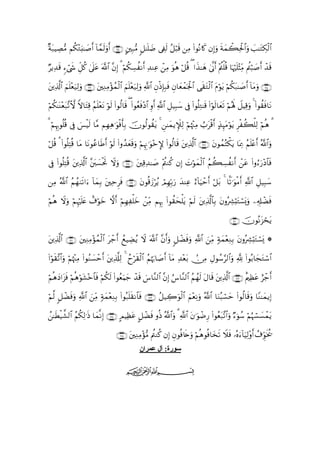 ٱلْكِتَٰبَ وَٱلْحِكْمَةَ وَإِن كَانُوا۟ مِن قَبْلُ لَفِى ضَلَٰلٍ مُّبِينٍ ﴿١٦٤﴾ أَوَلَمَّآ أَصَٰبَتْكُم مُّصِيبَةٌ
قَدْ أَصَبْتُم مِّثْلَيْهَا قُلْتُمْ أَنَّىٰ هَٰذَا ۖ قُلْ هُوَ مِنْ عِندِ أَنفُسِكُمْ ۗ إِنَّ ٱللَّهَ عَلَىٰ كُلِّ شَىْءٍ قَدِيرٌ
﴿١٦٥﴾ وَمَآ أَصَٰبَكُمْ يَوْمَ ٱلْتَقَى ٱلْجَمْعَانِ فَبِإِذْنِ ٱللَّهِ وَلِيَعْلَمَ ٱلْمُؤْمِنِينَ ﴿١٦٦﴾ وَلِيَعْلَمَ ٱلَّذِينَ
نَافَقُوا۟ ۚ وَقِيلَ لَهُمْ تَعَالَوْا۟ قَٰتِلُوا۟ فِى سَبِيلِ ٱللَّهِ أَوِ ٱدْفَعُوا۟ ۖ قَالُوا۟ لَوْ نَعْلَمُ قِتَالًا لَّٱتَّبَعْنَٰكُمْ
ۗ هُمْ لِلْكُفْرِ يَوْمَئِذٍ أَقْرَبُ مِنْهُمْ لِلْإِيمَٰنِ ۚ يَقُولُونَ بِأَفْوَٰهِهِم مَّا لَيْسَ فِى قُلُوبِهِمْ ۗ
وَٱللَّهُ أَعْلَمُ بِمَا يَكْتُمُونَ ﴿١٦٧﴾ ٱلَّذِينَ قَالُوا۟ لِإِخْوَٰنِهِمْ وَقَعَدُوا۟ لَوْ أَطَاعُونَا مَا قُتِلُوا۟ ۗ قُلْ
فَٱدْرَءُوا۟ عَنْ أَنفُسِكُمُ ٱلْمَوْتَ إِن كُنتُمْ صَٰدِقِينَ ﴿١٦٨﴾ وَلَا تَحْسَبَنَّ ٱلَّذِينَ قُتِلُوا۟ فِى
سَبِيلِ ٱللَّهِ أَمْوَٰتًۢا ۚ بَلْ أَحْيَآءٌ عِندَ رَبِّهِمْ يُرْزَقُونَ ﴿١٦٩﴾ فَرِحِينَ بِمَآ ءَاتَىٰهُمُ ٱللَّهُ مِن
فَضْلِهِۦ وَيَسْتَبْشِرُونَ بِٱلَّذِينَ لَمْ يَلْحَقُوا۟ بِهِم مِّنْ خَلْفِهِمْ أَلَّا خَوْفٌ عَلَيْهِمْ وَلَا هُمْ
يَحْزَنُونَ ﴿١٧٠﴾
۞ يَسْتَبْشِرُونَ بِنِعْمَةٍ مِّنَ ٱللَّهِ وَفَضْلٍ وَأَنَّ ٱللَّهَ لَا يُضِيعُ أَجْرَ ٱلْمُؤْمِنِينَ ﴿١٧١﴾ ٱلَّذِينَ
ٱسْتَجَابُوا۟ لِلَّهِ وَٱلرَّسُولِ مِنۢ بَعْدِ مَآ أَصَابَهُمُ ٱلْقَرْحُ ۚ لِلَّذِينَ أَحْسَنُوا۟ مِنْهُمْ وَٱتَّقَوْا۟
أَجْرٌ عَظِيمٌ ﴿١٧٢﴾ ٱلَّذِينَ قَالَ لَهُمُ ٱلنَّاسُ إِنَّ ٱلنَّاسَ قَدْ جَمَعُوا۟ لَكُمْ فَٱخْشَوْهُمْ فَزَادَهُمْ
إِيمَٰنًا وَقَالُوا۟ حَسْبُنَا ٱللَّهُ وَنِعْمَ ٱلْوَكِيلُ ﴿١٧٣﴾ فَٱنقَلَبُوا۟ بِنِعْمَةٍ مِّنَ ٱللَّهِ وَفَضْلٍ لَّمْ
يَمْسَسْهُمْ سُوٓءٌ وَٱتَّبَعُوا۟ رِضْوَٰنَ ٱللَّهِ ۗ وَٱللَّهُ ذُو فَضْلٍ عَظِيمٍ ﴿١٧٤﴾ إِنَّمَا ذَٰلِكُمُ ٱلشَّيْطَٰنُ
يُخَوِّفُ أَوْلِيَآءَهُۥ فَلَا تَخَافُوهُمْ وَخَافُونِ إِن كُنتُم مُّؤْمِنِينَ ﴿١٧٥﴾
سورة: آل عمران
﷽